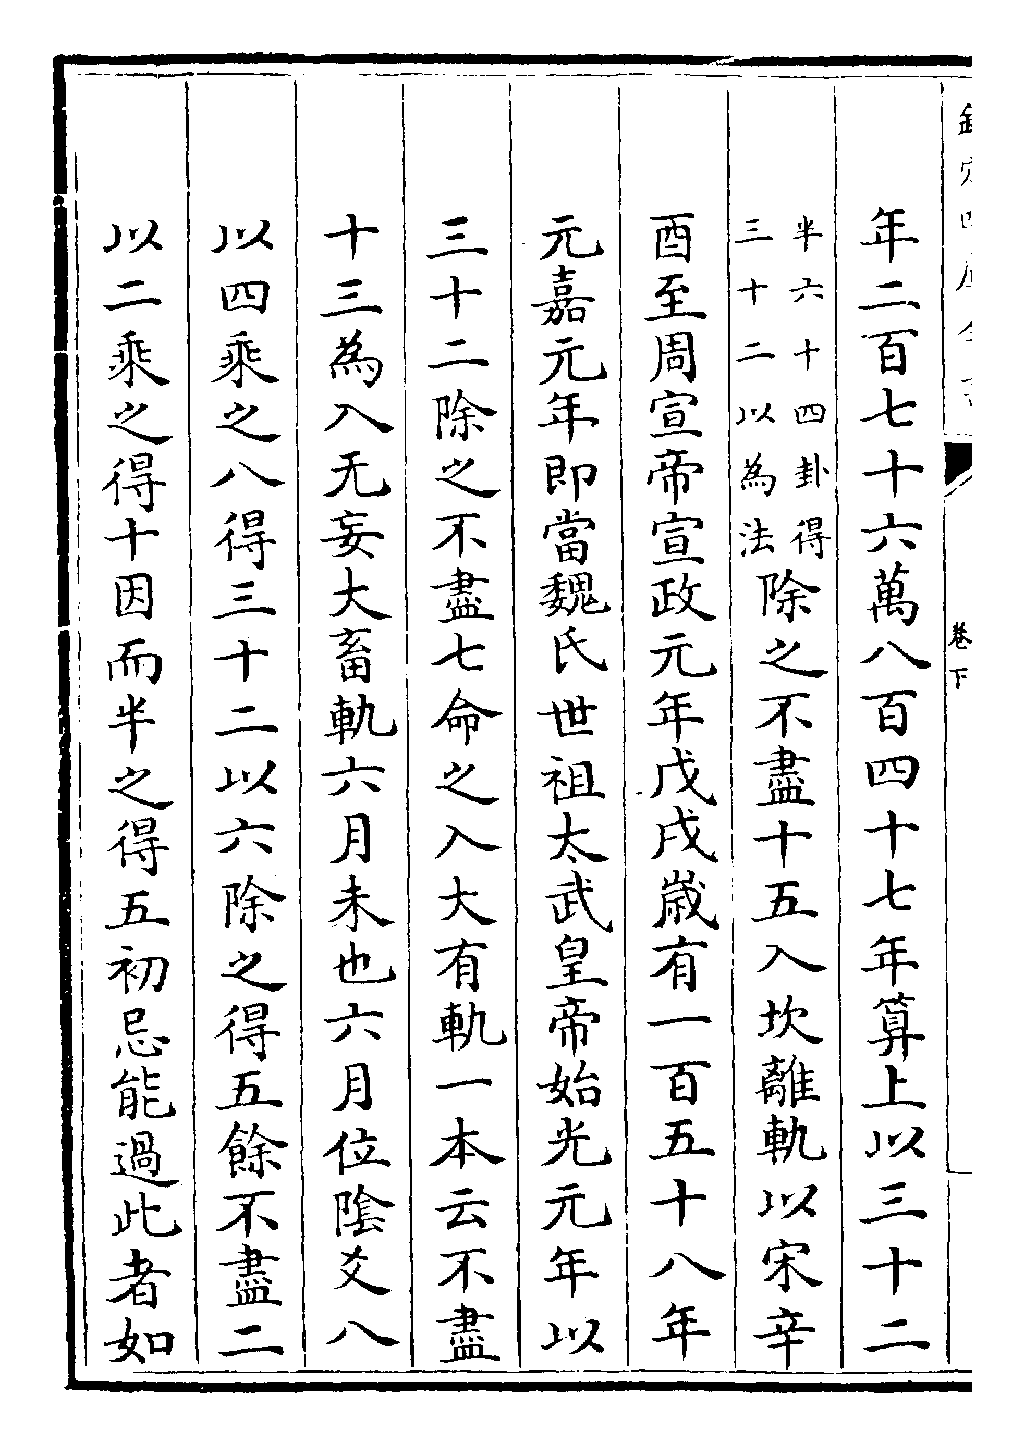 欽定四庫全書
卷下
年二百七十六萬八百四十七年算上以三十二
半六十四卦得
三十二以為法
除之不盡十五入坎離軌以宋辛
酉至周宣帝宣政元年戊戌歳有一百五十八年
元嘉元年即當魏氏世祖太武皇帝始光元年以
三十二除之不盡七命之入大有軌一本云不盡
十三為入无妄大畜軌六月未也六月位隂爻八
以四乘之八得三十二以六除之得五餘不盡二
以二乘之得十因而半之得五初忌能過此者如